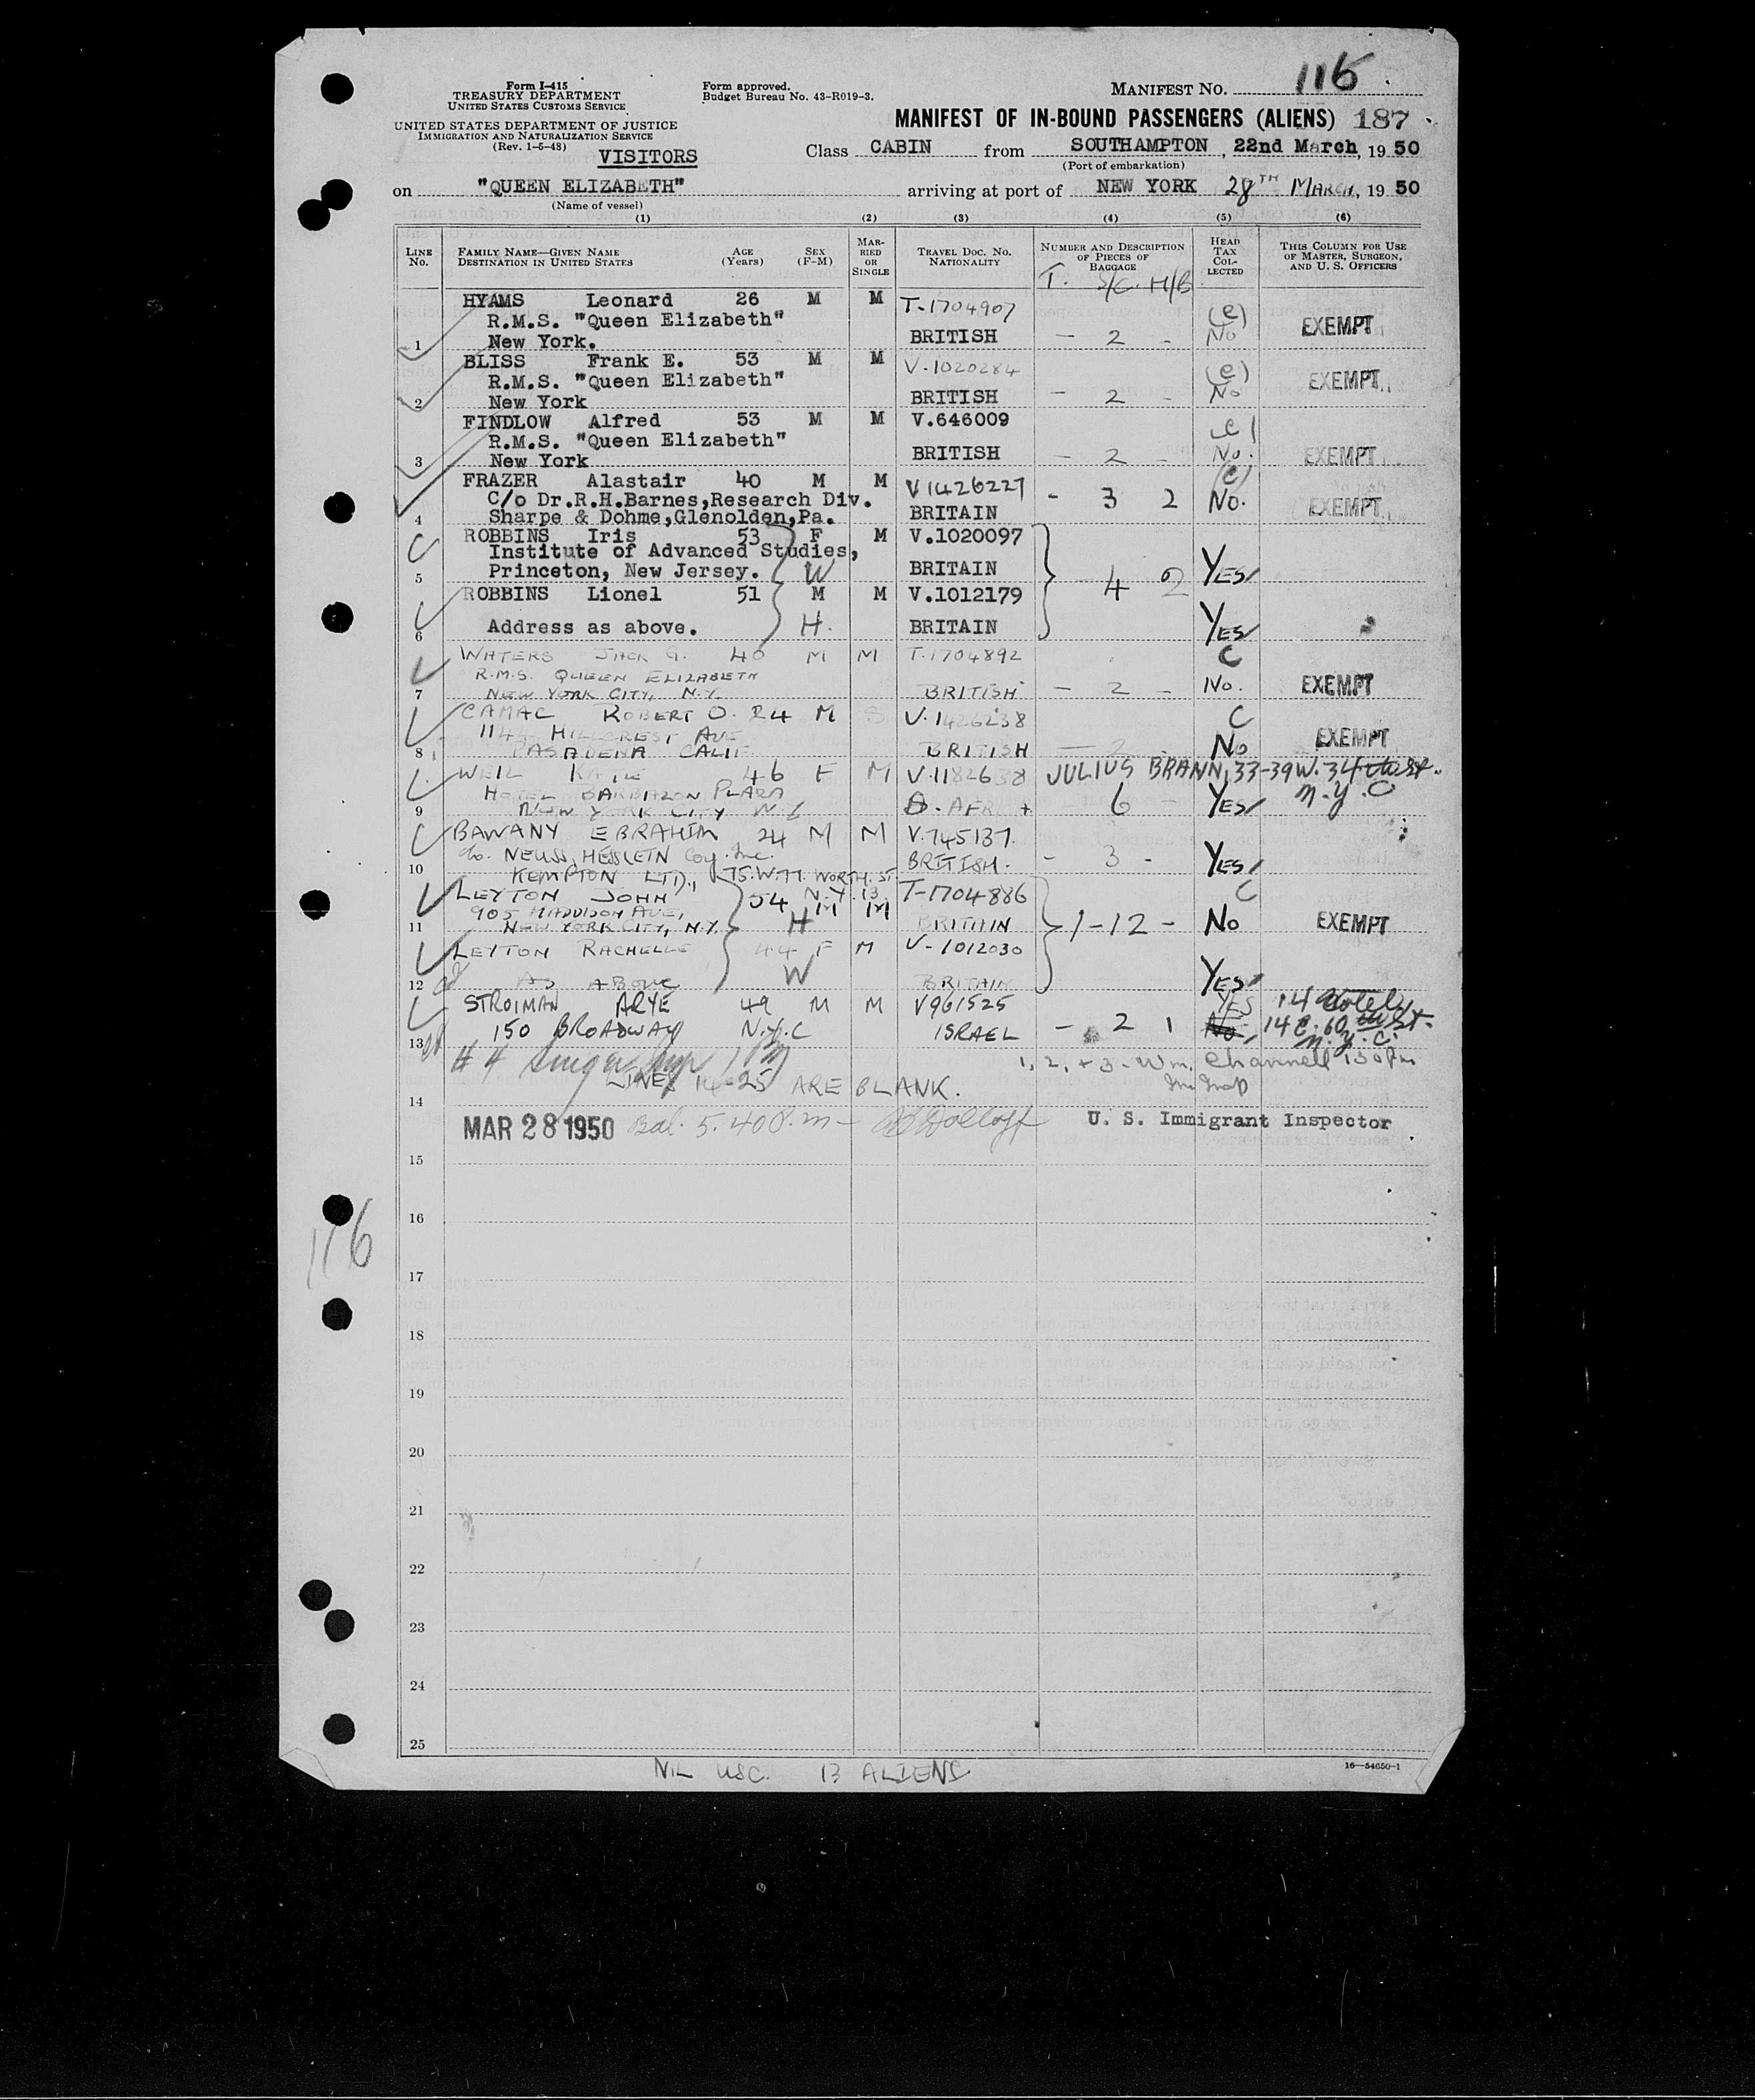 Form I-415
TREASURY DEPARTMENT
UNITED STATES CUSTOMS SERVICE
UNITED STATES DEPARTMENT OF JUSTICE
IMMIGRATION AND NATURALIZATION SERVICE
(Rev. 1-5-48)
VISITORS
Form approved.
Budget Bureau No. 43-R019-3.
MANIFEST NO. 116
MANIFEST OF IN-BOUND PASSENGERS (ALIENS) 187
Class CABIN from SOUTHAMPTON, 22nd March, 1950
(Port of embarkation)
on "QUEEN ELIZABETH" arriving at port of NEW YORK 28TH MARCH, 1950
(Name of vessel)
(1) (2) (3) (4) (5) (6)
LINE No. FAMILY NAME—GIVEN NAME DESTINATION IN UNITED STATES AGE (Years) SEX (F-M) MARRIED OR SINGLE TRAVEL DOC. NO. NATIONALITY NUMBER AND DESCRIPTION OF PIECES OF BAGGAGE HEAD TAX COLLECTED THIS COLUMN FOR USE OF MASTER, SURGEON, AND U. S. OFFICERS
T. S/C. H/B
HYAMS Leonard 26 M M T-1704907
R.M.S. "Queen Elizabeth" (e) EXEMPT
1 New York. BRITISH - 2 - No
BLISS Frank E. 53 M M V.1020284
R.M.S. "Queen Elizabeth" (e) EXEMPT
2 New York BRITISH - 2 - No
FINDLOW Alfred 53 M M V.646009
R.M.S. "Queen Elizabeth"
3 New York BRITISH - 2 - No. EXEMPT
FRAZER Alastair 40 M M V1426227
C/o Dr.R.H.Barnes,Research Div. - 3 2 No. EXEMPT
4 Sharpe & Dohme,Glenolden,Pa. BRITAIN
ROBBINS Iris 53 F M V.1020097
Institute of Advanced Studies,
5 Princeton, New Jersey. W BRITAIN 4 2 YES
ROBBINS Lionel 51 M M V.1012179
6 Address as above. H. BRITAIN YES
WATERS JACK G. 40 M M T.1704892 C
R.M.S. QUEEN ELIZABETH
7 NEW YORK CITY, N.Y. BRITISH - 2 - No. EXEMPT
CAMAC ROBERT O. 24 M S V.1426238 C
1144 HILLCREST AVE
8 PASADENA CALIF BRITISH - 2 - No EXEMPT
WEIL KATE 46 F M V.1182638 JULIUS BRANN, 33-39 W. 34th St.
HOTEL BARBIZON PLAZA N.Y.C
9 NEW YORK CITY N.Y. S. AFR 6 - YES
BAWANY EBRAHIM 24 M M V.745137.
c/o. NEUSS, HESSLEIN Coy. Inc. BRITISH. - 3 -
10 KEMPTON LTD., 75.W77. WORTH. ST. YES
N.Y.13
LEYTON JOHN 54 M M T-1704886 C
905 MADDISON AVE,
11 NEW YORK CITY, N.Y. H BRITAIN 1-12 - No EXEMPT
LEYTON RACHELLE 44 F M V-1012030
12 AS ABOVE W BRITAIN YES
STROIMAN ARYE 49 M M V961525 YES
13 150 BROADWAY N.Y.C ISRAEL - 2 1 No 14 E. 60 th St.
N.Y.C.
1, 2, + 3 - Wm. Channell 130pm
LINES 14-25 ARE BLANK.
14
MAR 28 1950 Bal. 5.40 P.m - U. S. Immigrant Inspector
15
16
17
18
19
20
21
22
23
24
25
116
NIL USC. 13 ALIENS
16—54650-1